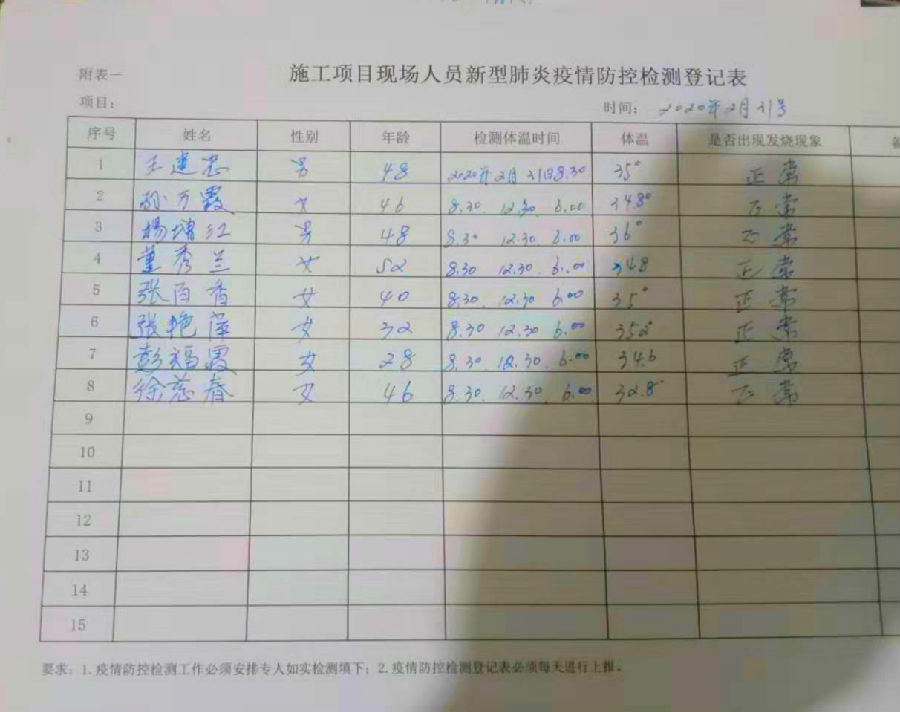 附表一
施工项目现场人员新型肺炎疫情防控检测登记表
项目： 时间： 2020年2月21号
序号 姓名 性别 年龄 检测体温时间 体温 是否出现发烧现象
1 王建忠 男 48 2020年2月21日8.30 35° 正常
2 孙万霞 女 46 8.30 12.30 6.00 34.8° 正常
3 杨增江 男 48 8.30 12.30 6.00 36° 正常
4 董秀兰 女 52 8.30 12.30 6.00 348 正常
5 张百香 女 40 8.30 12.30 6.00 35° 正常
6 张艳 女 32 8.30 12.30 6.00 352° 正常
7 彭福霞 女 28 8.30 12.30 6.00 346 正常
8 徐慈春 女 46 8.30 12.30 6.00 32.8° 正常
9
10
11
12
13
14
15
要求：1.疫情防控检测工作必须安排专人如实检测填下；2.疫情防控检测登记表必须每天进行上报。